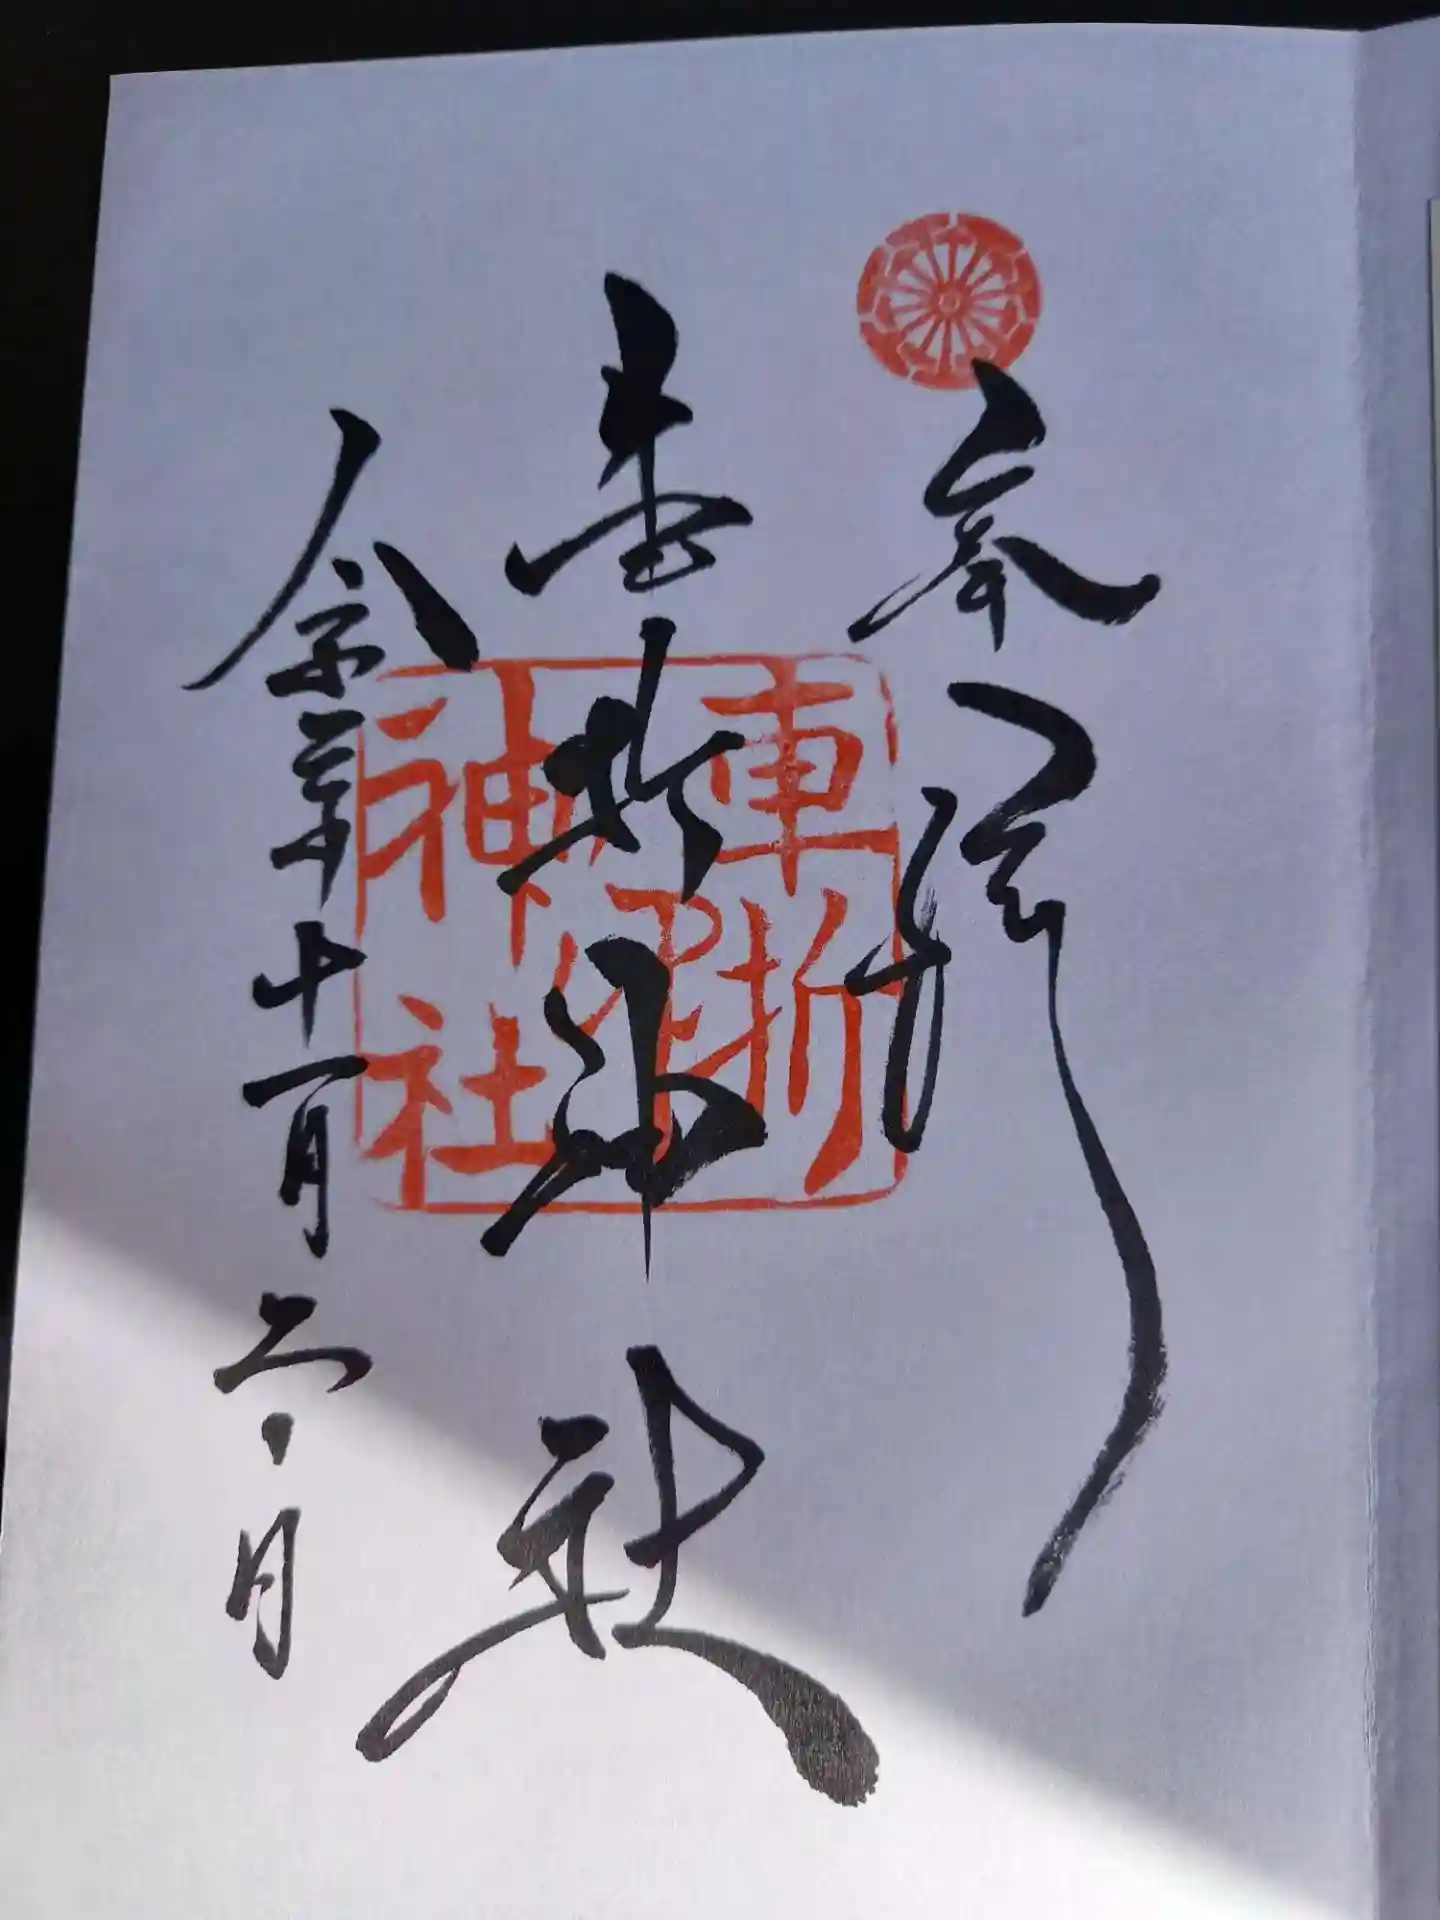 奉拝
車折神社
令和 年十一月 日
車折
印
神社